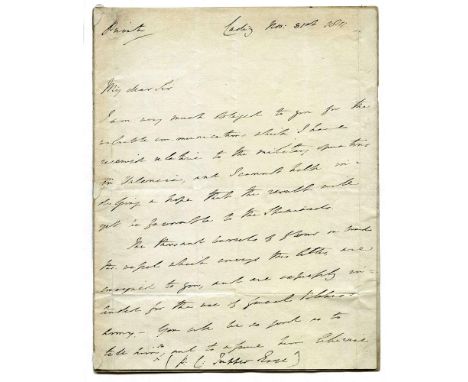 Private Cadiz Nov: 181
My dear Sir
I am very much obliged to you for the
valuable communications which I have
received relative to the military operations
in Valencia, and I cannot help in-
dulging a hope that the result will
yet be favorable to the Spaniards.
The thousand barrels of flour on board
the vessel which conveys this letter are
consigned to you, and are expressly in-
tended for the use of General
Army.- You will be so good as to
tell him, and to assure him
(P. C: Tupper Esqr)